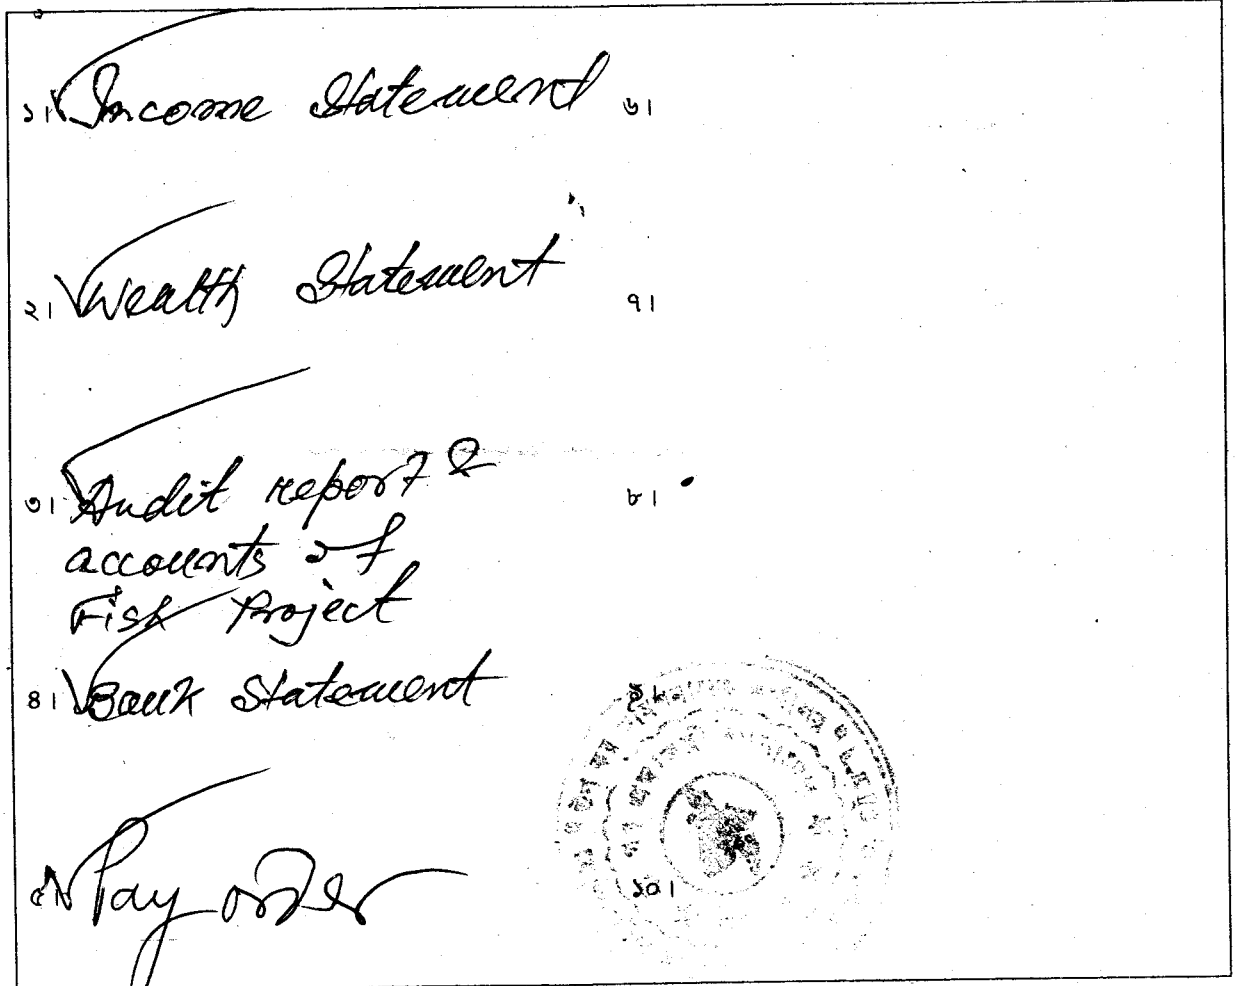 ১। Income Statement ৬।
২। Wealth Statement ৭।
৩। Audit report & ৮।
accounts of
Fish Project
৪। Bank Statement ৯।
৫। Pay order ১০।